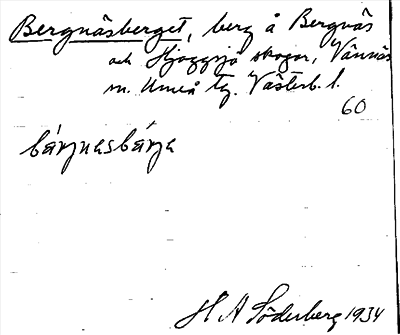 Bergnäsberget, berg å Bergnäs
och Hjoggsjö skogar, Vännäs
sn. Umeå tg. Västerb. l.
60
bárjnasbárja
H A Söderberg 1934